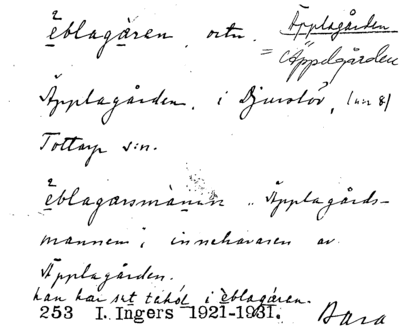 ²èblagàren, ortn. Äpplagården
= Äppelgården
Äpplagården, i Djurslöv, (nr 8)
Tottarp sn.
²èblagarsmànnen "Äpplagårds-
mannen", innehavaren av
Äpplagården.
han har set takól i èblagàren.
253 I. Ingers 1921-1931. Bara